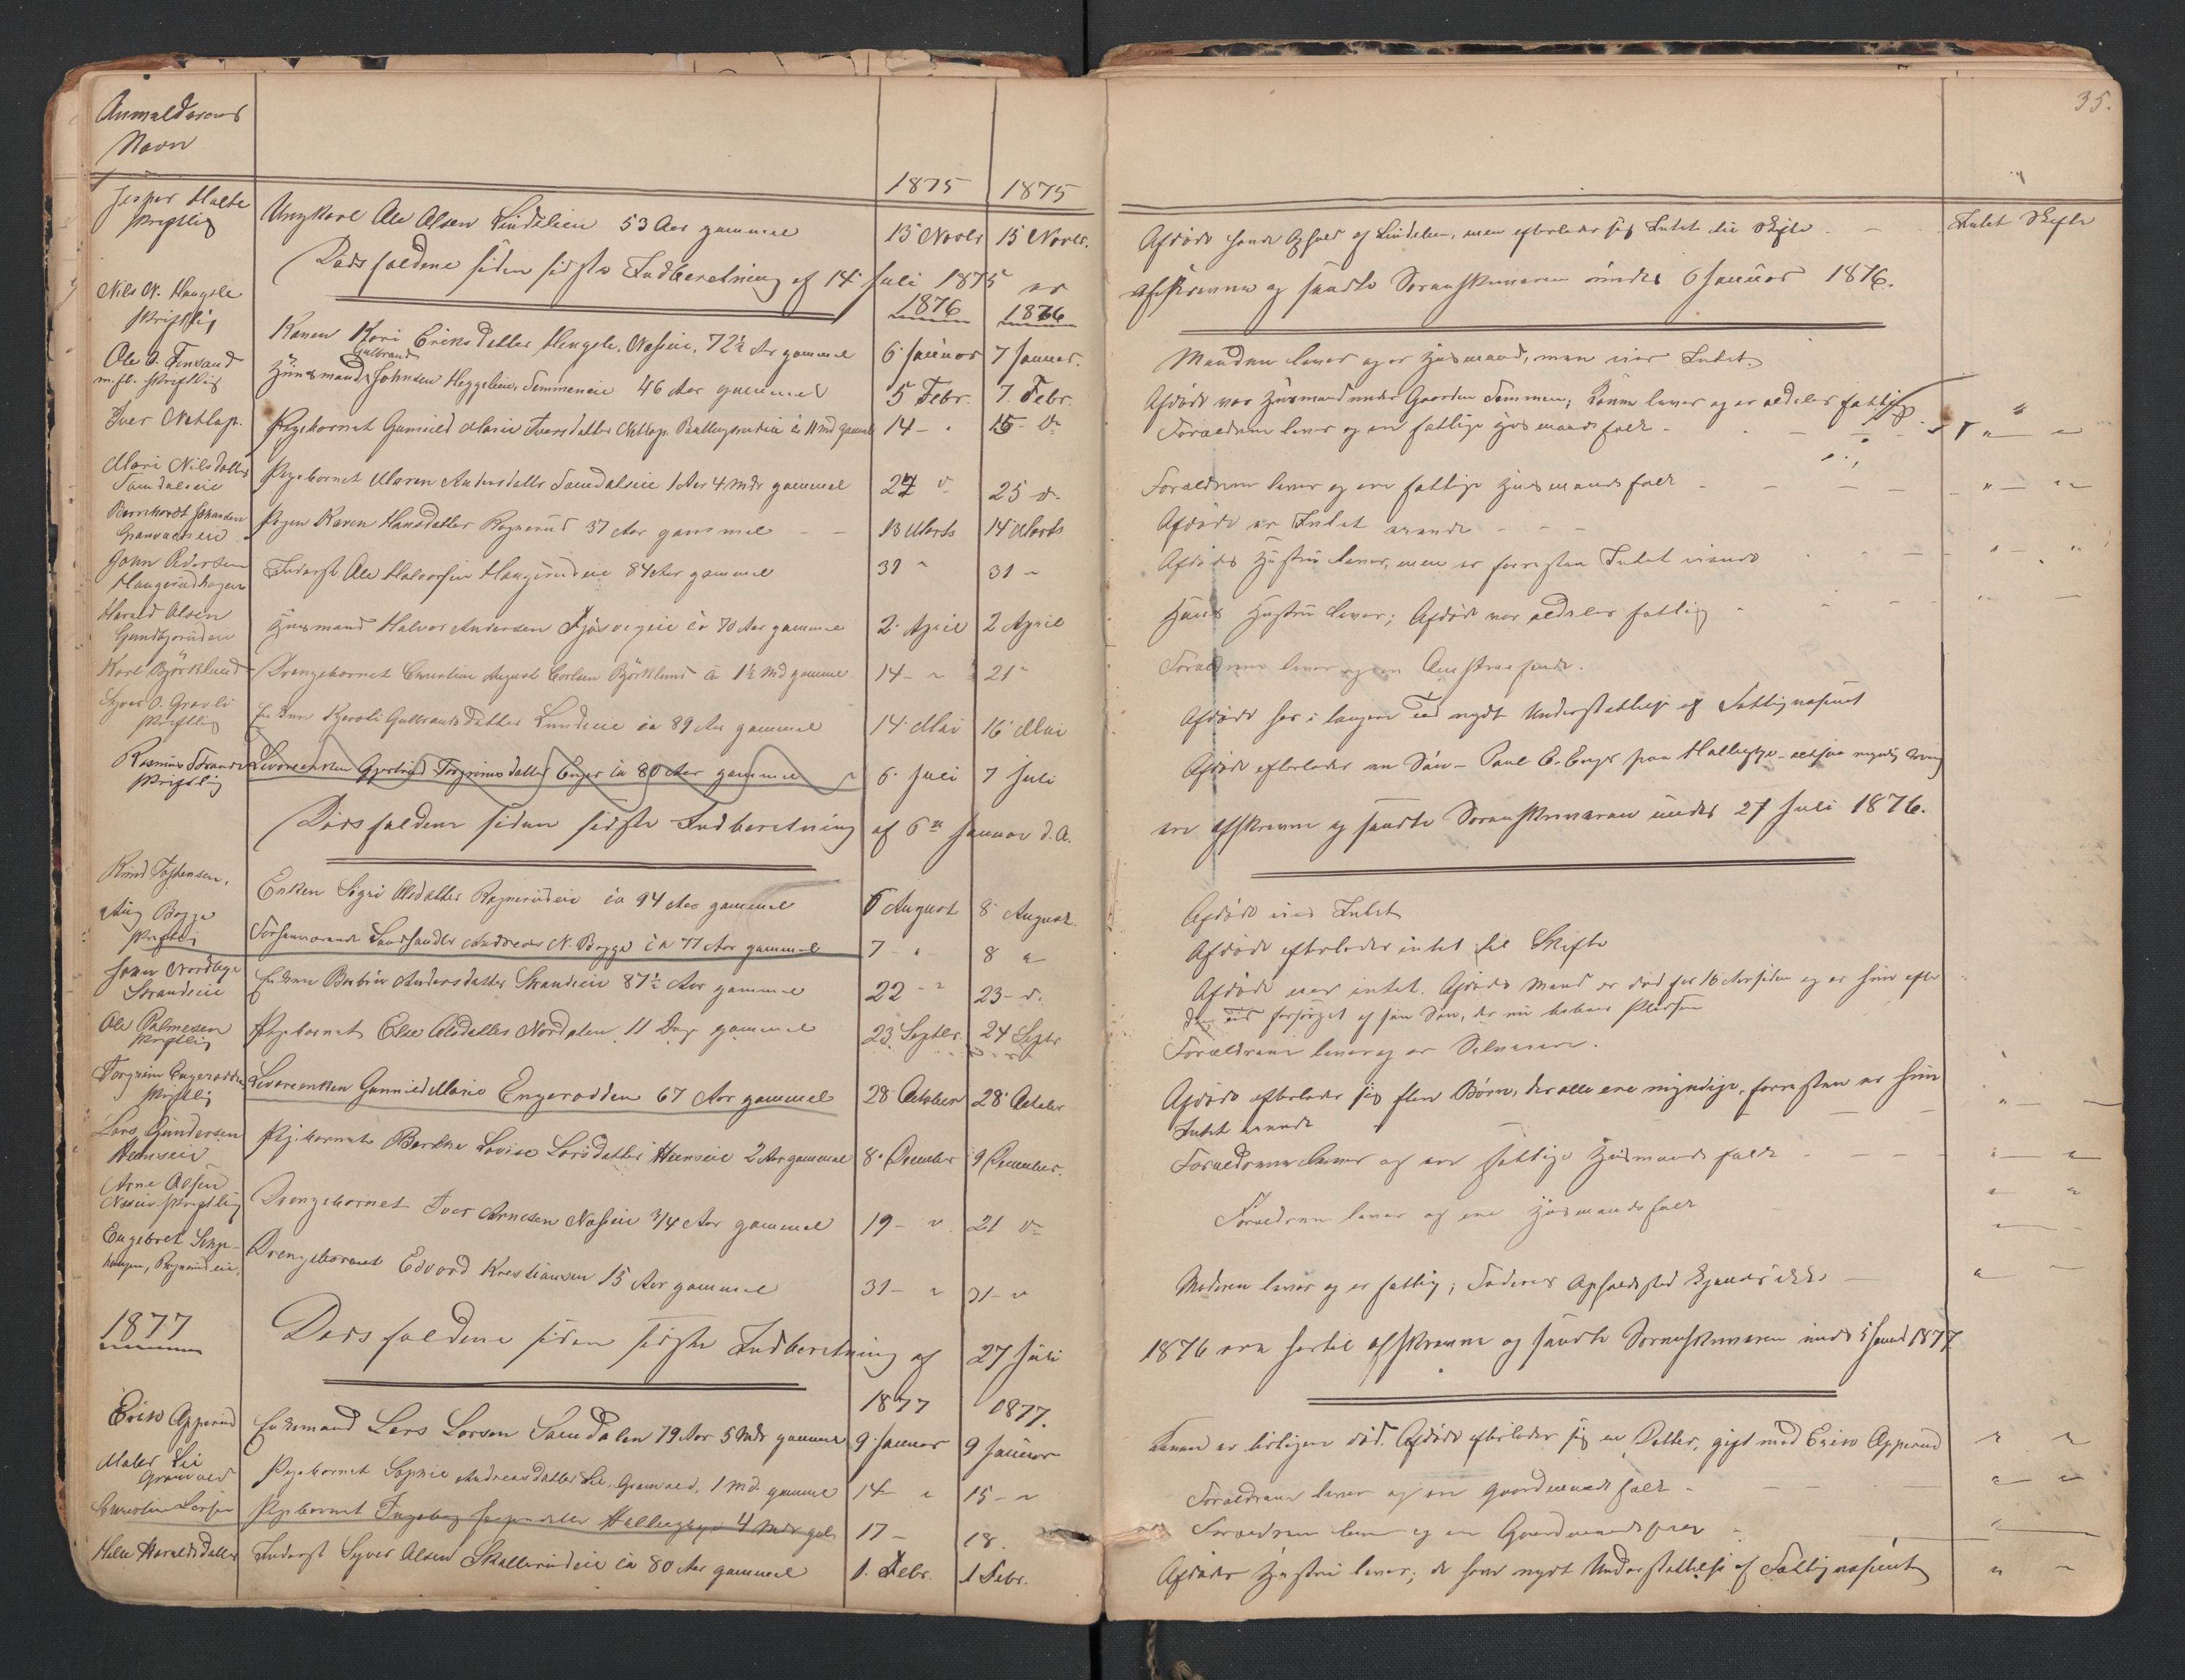 35.
Anmelderens
Navn
1875 1875
Jesper Halte
skriftlig
Ungkarl Ole Olsen Lindelien 53 Aar gammel 15 Novbr 15 Novbr.
Afdøde havde Ophold af Lindelien, men efterlader sig Intet til Skifte - Intet Skifte
Dødsfaldene siden sidste Indberetning af 14 Juli 1875 er
afskrevne og sendte Sorenskriveren under 6 Januar 1876.
1876 1876
Nils N. Haugsle
skriftlig
Konen Kari Eriksdatter Hengsle, Næseie, 72½ Aar gammel 6 Januar 7 Januar.
Manden lever og er Husmand, men eier Intet.
Ole O. Finsand
m.fl. skriftlig
Gulbrand
Husmand Johnsen Heggelien, Semmeneie 46 Aar gammel 5 Febr. 7. Febr.
Afdøde var Husmand under Gaarden Semmen; Konen lever og er aldeles fattig
Iver Netlap.
Pigebarnet Gunhild Marie Iversdatter Netlap, 11 Md gammel 14 - " 15 - "
Forældrene lever og ere fattige Husmandsfolk - " - "
Mari Nilsdatter
Samdaleie
Pigebarnet Maren Andersdatter Samdaleie 1 Aar 4 Mdr gammel 24 " 25 "
Forældrene lever og ere fattige Husmandsfolk - " - "
Bernhardt Johansen
Pigen Karen Hansdatter Ragnerud 37 Aar gammel - - 13 Marts 14 Marts
Afdøde er Intet eiende - - -
John Pedersen
Haugerudhagen
Inderst Ole Halvorsen Haugerudeie 84 Aar gammel 31 " 31 "
Afdødes Hustru lever, men er forresten Intet eiende
Harald Olsen
Husmand Halvor Andersen Kjøsvegeie ca 70 Aar gammel 2 April 2 April
Hans Hustru lever; Afdøde var aldeles fattig
Karl Björklund
Drengebarnet Christian August Carlsen Björklund ca 1½ Md gammel 14 - " 21 "
Forældrene lever og ere
Syver O. Gravli
skriftlig
Enken Kjersti Gulbrandsdatter Lundeie ca 89 Aar gammel 14 Mai 16 Mai
Afdøde har i længere Tid nydt Understøttelse af Fattigvæsenet
Rasmus Strande
skriftlig
Levereenken Gjertrud Torgrimsdatter Enger ca 80 Aar gammel 6 Juli 7 Juli
Afdøde efterlader en Søn - Paul E. Enger paa Hallingby - altsaa myndig Arving
Dødsfaldene siden sidste Indberetning af 6te Januar d.A.
ere afskrevne og sendte Sorenskriveren under 27 Juli 1876.
Knud Tostensen.
Enken Sigri Olsdatter Ragnerudeie ca 94 Aar gammel 6 August 8 August.
Afdøde eied Intet
Aug Bogge
skriftlig
Forhenværende Landhandler Andreas N. Bogge ca 77 Aar gammel 7 - " 8 "
Afdøde efterlader intet til Skifte
John Nordbye
Strandeie
Enken Barbro Andersdatter Strandeie 87½ Aar gammel 22 - " 23 - "
Afdøde eier intet. Afdødes Mand er død for 16 Aar siden og er hun efter
den Tid forsørget af sin Søn, der nu beboer Pladsen
Ole Palmesen
skriftlig
Pigebarnet Else Olsdatter Nordalen 11 Dage gammel 23 Septbr. 24 Septr
Forældrene lever og er Selveiere.
Torgrim Engerodden
skriftlig
Levereenken Gunhild Marie Engerodden 67 Aar gammel 28 October 28 October
Afdøde efterlader sig flere Børn, der alle ere myndige, forresten er hun
Intet eiende
Lars Gundersen
Heenseie
Pigebarnet Berthe Lovise Larsdatter Heenseie 2 Aar gammel 8 December 9 December.
Forældrene lever og ere fattige Husmandsfolk - - -
Arne Olsen
Næseie skriftlig
Drengebarnet Iver Arnesen Næseie 3/4 Aar gammel 19 - " 21 "
Forældrene lever og ere Husmandsfolk
Engebret
Drengebarnet Edvard Kristiansen 15 Aar gammel 31 - " 31 - "
Moderen lever og er fattig; Faderens Opholdssted kjendes ikke -
1877
Dødsfaldene siden sidste Indberetning af 27 Juli
1876 ere hertil afskrevne og sendte Sorenskriveren under 5 Januar 1877.
1877 1877.
Erik Opperud
Enkemand Lars Larsen Samdalen 79 Aar 5 Mdr gammel 9 Januar 9 Januar
Konen er tidligere død. Afdøde efterlader sig en Datter, gift med Erik Opperud
Mathis Lie
Granvold
Pigebarnet Sophie Andreasdatter Lie, Granvold, 1 Md. gammel 14 " 15 - "
Forældrene lever og ere Gaardmandsfolk -
Christian Larsen
Pigebarnet Ingeborg Jespersdatter Hallingby 4 Mdr gl. 17 - 18.
Forældrene lever og ere Gaardmandsfolk -
Helle Haraldsdatter
Inderst Syver Olsen Skollerudeie ca 80 Aar gammel 1. Febr. 1 Febr.
Afdødes Hustru lever; de have nydt Understøttelse af Fattigvæsenet